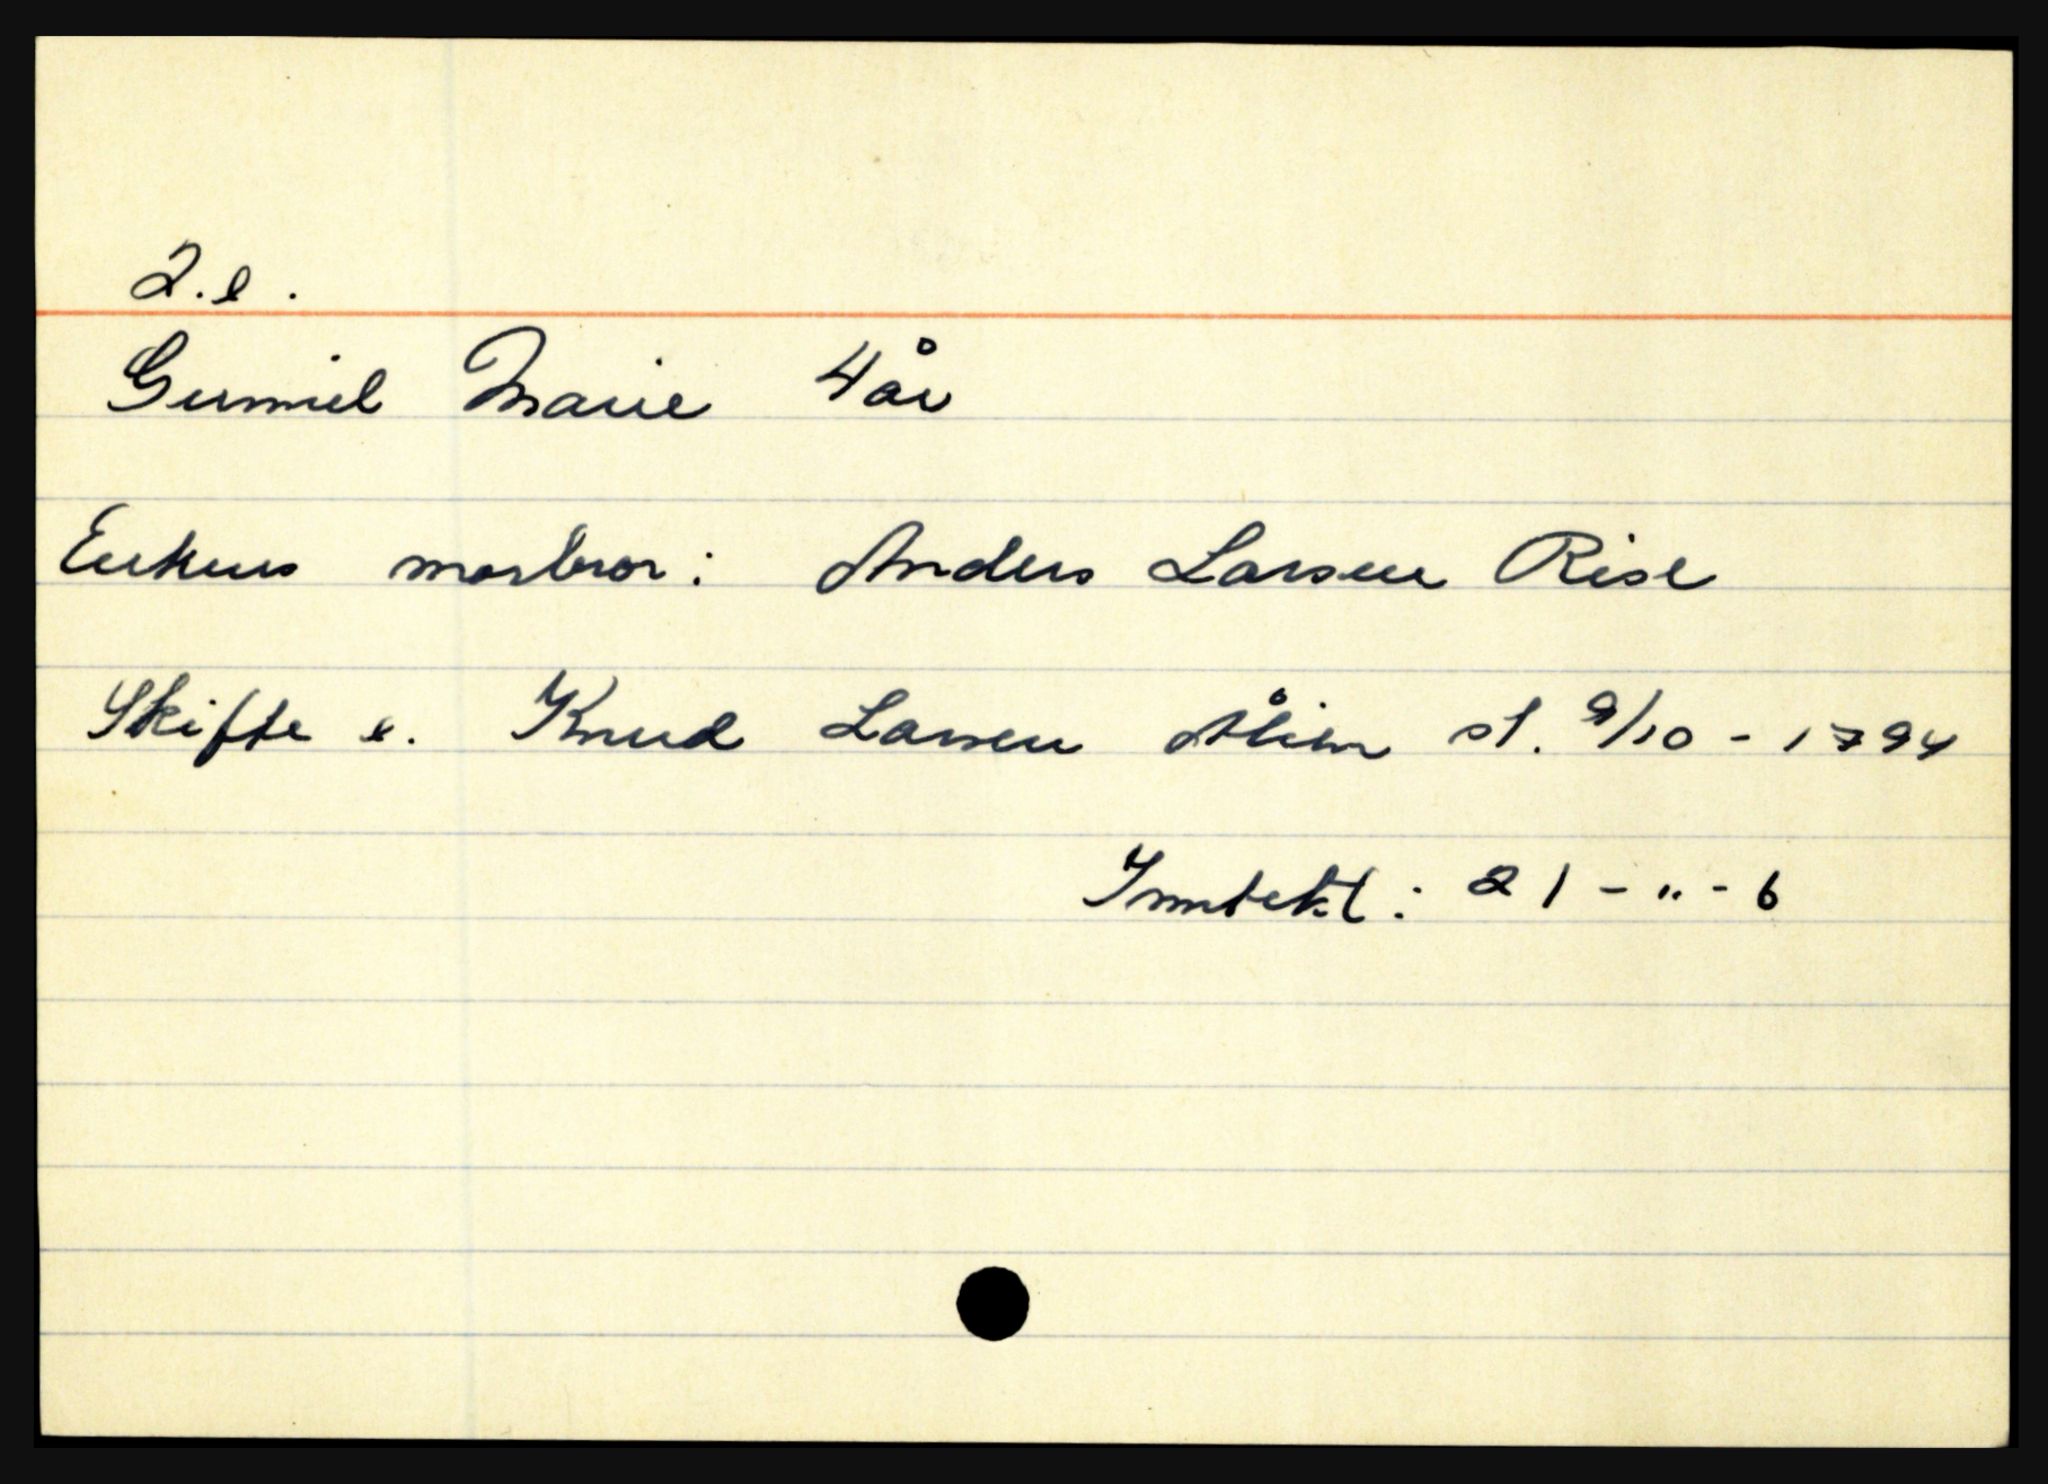 2.e.
Gunnild Marie 4 år
Enkens morbror: Anders Larsen Rise
Skifte e. Knud Larsen st. 9/10 - 1794
Inntekt: 21 - " - 6